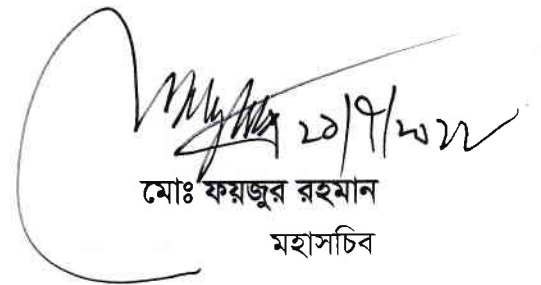 ২১/৭/২০২২
মোঃ ফয়জুর রহমান
মহাসচিব